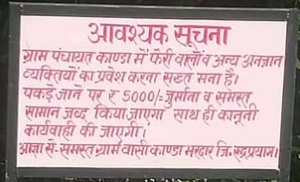 आवश्यक सूचना
ग्राम पंचायत काण्डा में फेरी वालों व अन्य अनजान
व्यक्तियों का प्रवेश करना सख्त मना है।
पकड़े जाने पर ₹ 5000/- जुर्माना व समस्त
सामान जब्द किया जाएगा साथ ही कानूनी
कार्यवाही की जाएगी।
आज्ञा से- समस्त ग्राम वासी काण्डा भरदार जि. रुद्रप्रयाग।